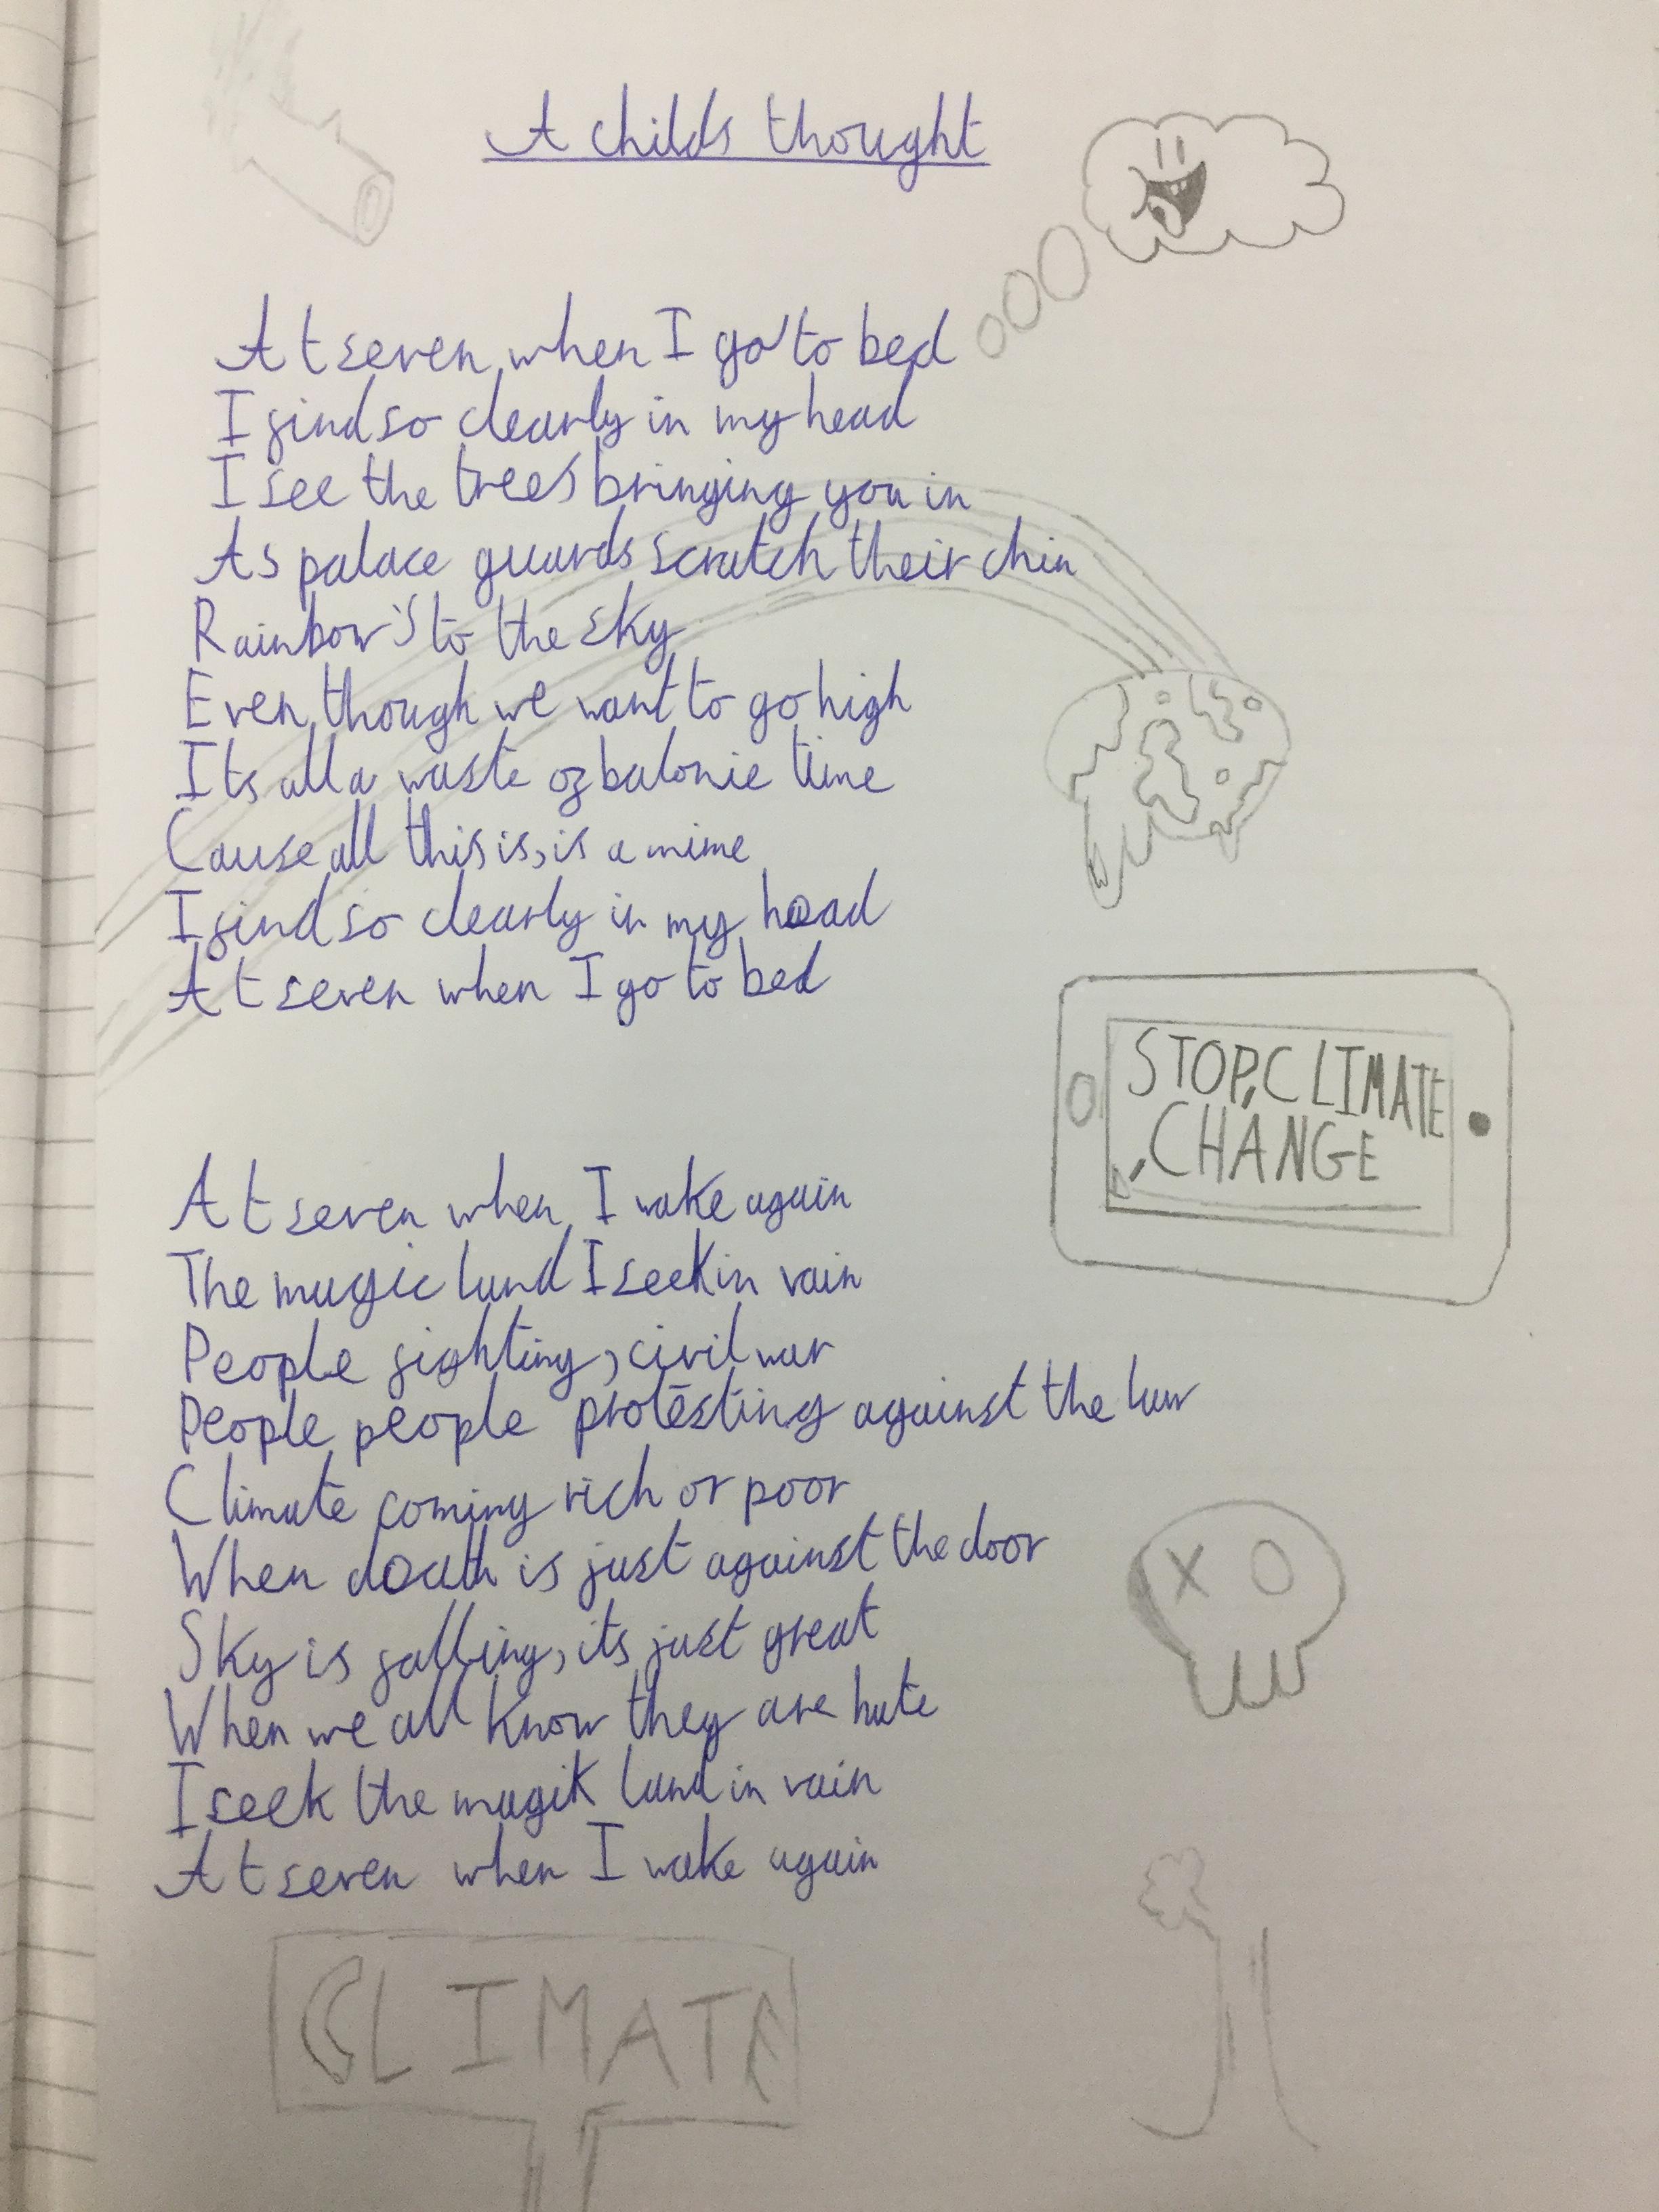 A childs thought
At seven, when I go to bed
I find so clearly in my head
I see the trees bringing you in
As palace guards scratch their chin
Rainbow's to the sky
Even though we want to go high
Its all a waste of balonie time
Cause all this is, is a mime
I find so clearly in my head
At seven when I go to bed
STOP, CLIMATE
, CHANGE
At seven when I wake again
The magic land I seek in vain
People fighting, civil war
People people protesting against the law
Climate coming rich or poor
When death is just against the door
Sky is falling, its just great
When we all know they are hate
I seek the magik land in vain
At seven when I wake again
CLIMATE